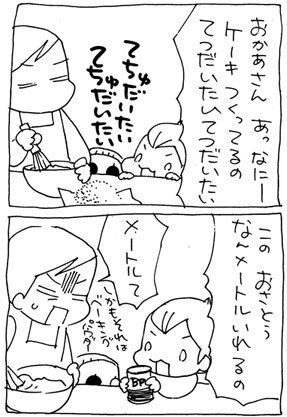 おかあさん あっなにー
ケーキ つくってるの
てつだいたいてつだいたい
てちゅだいたい
てちゅだいたい
この おさとう
なんメートルいれるの
メートルて
しかもそれは
ベーキング
パウダー
BP